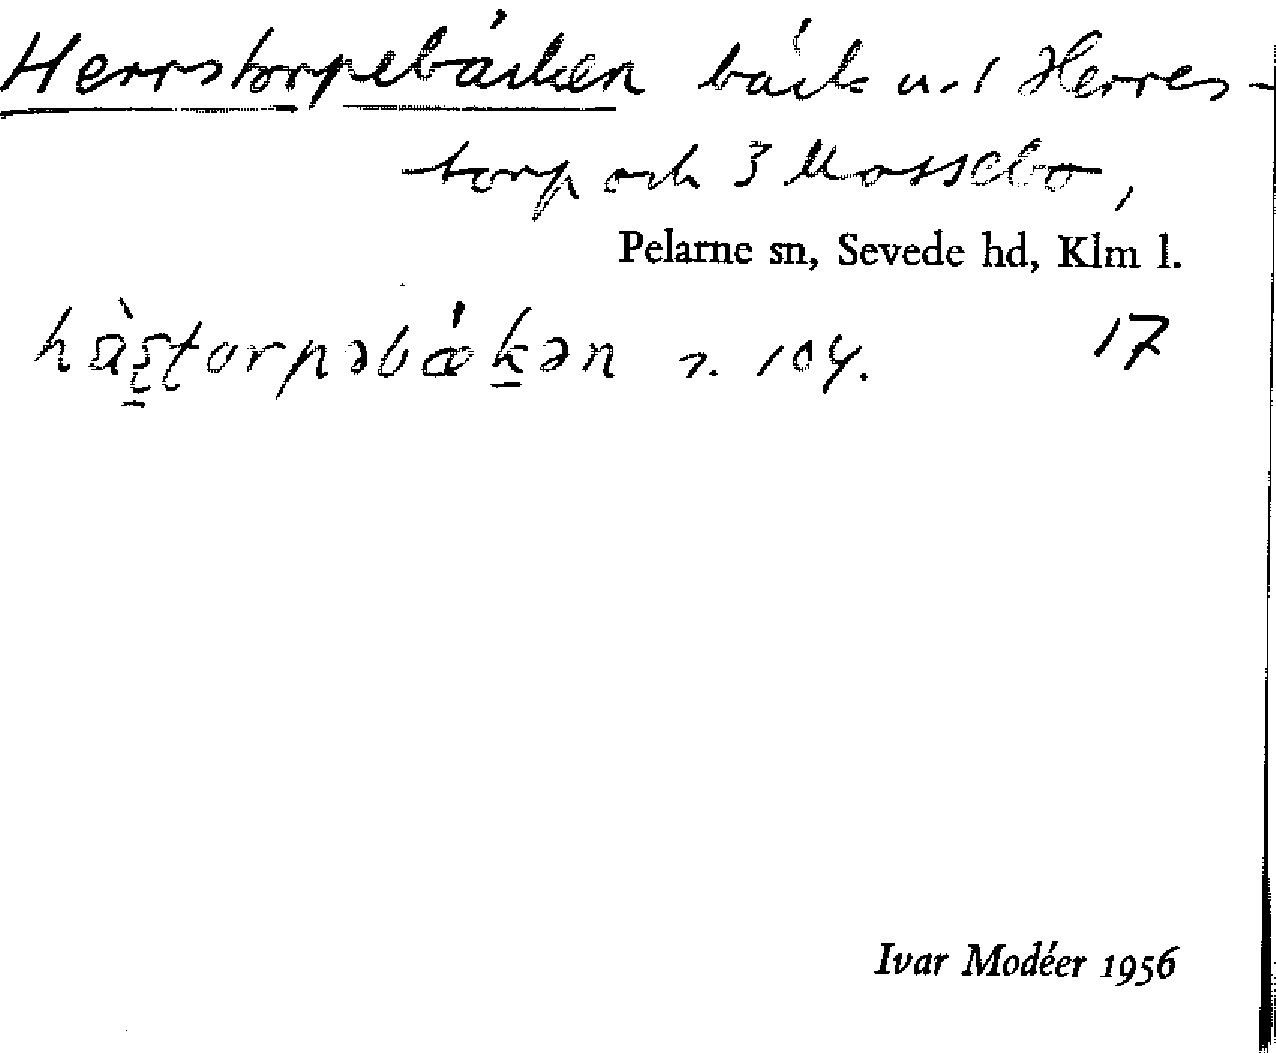 Herrstorpebäcken bäck u. 1 Herres-
torp och 3 Mossebo,
Pelarne sn, Sevede hd, Klm l.
104. 17
Ivar Modéer 1956